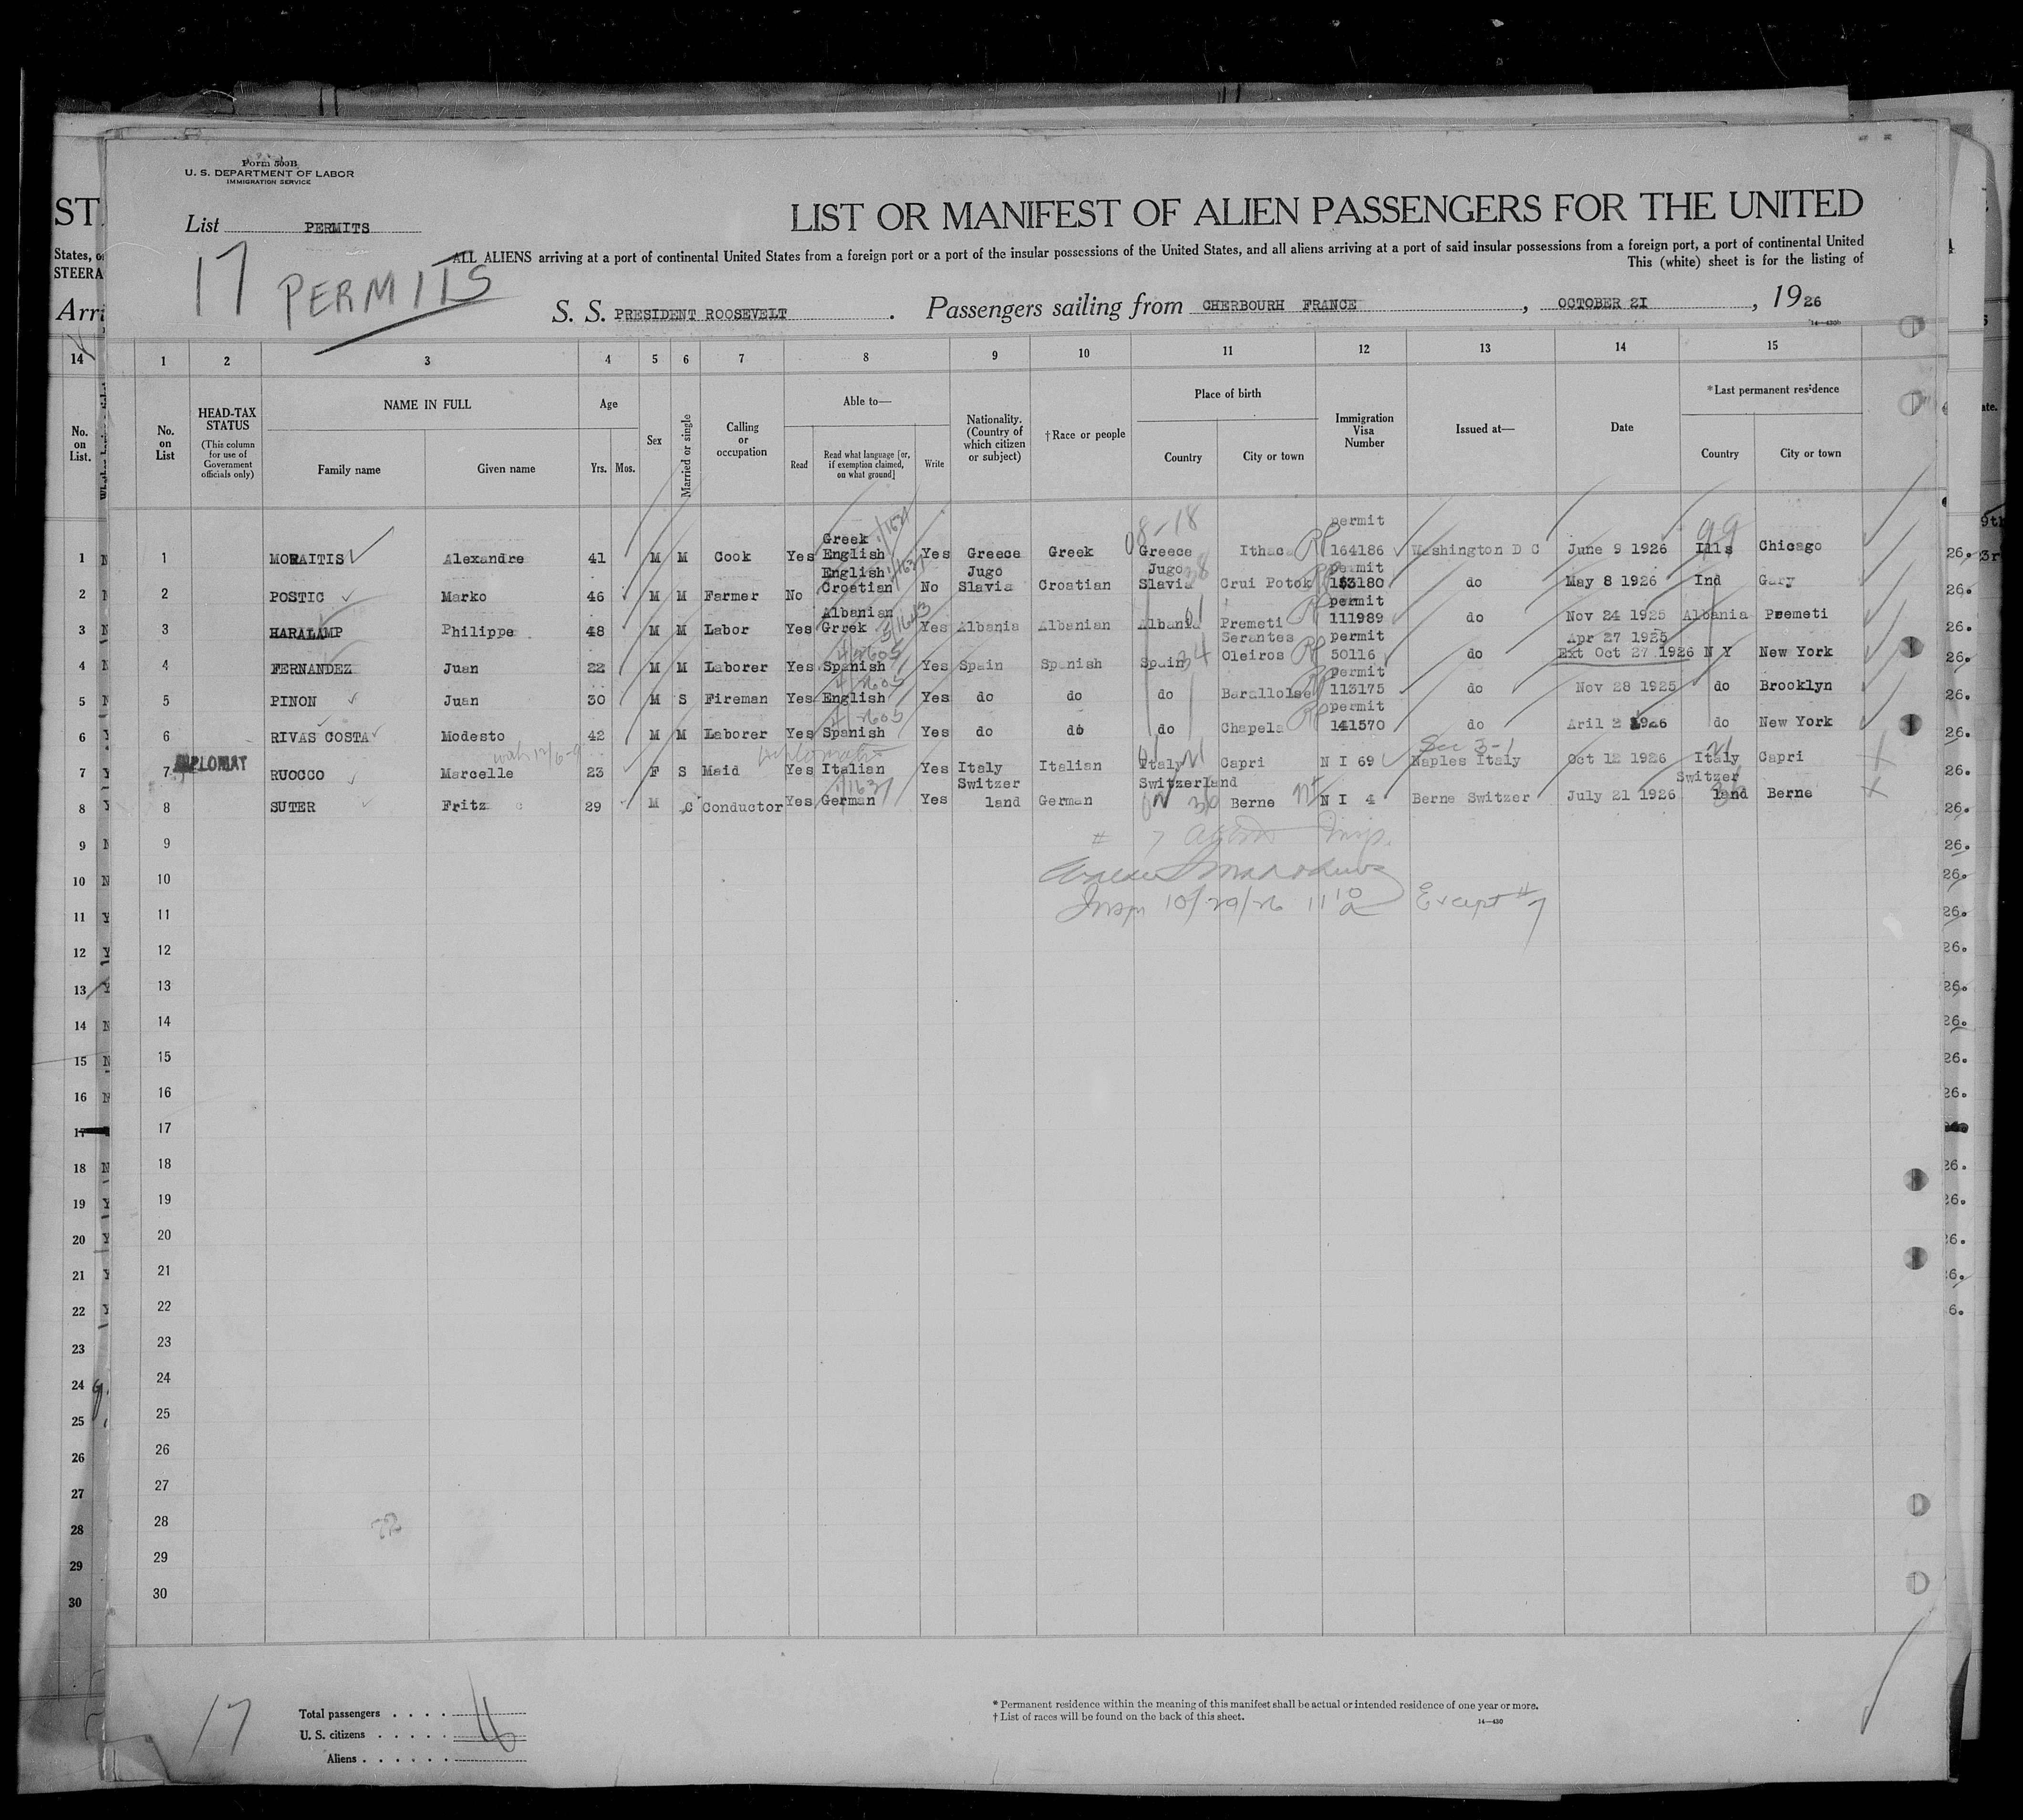 Form 500B
U. S. DEPARTMENT OF LABOR
IMMIGRATION SERVICE
List PERMITS
LIST OR MANIFEST OF ALIEN PASSENGERS FOR THE UNITED
ALL ALIENS arriving at a port of continental United States from a foreign port or a port of the insular possessions of the United States, and all aliens arriving at a port of said insular possessions from a foreign port, a port of continental United
This (white) sheet is for the listing of
17 PERMITS
S. S. PRESIDENT ROOSEVELT . Passengers sailing from CHERBOURH FRANCE , OCTOBER 2I , 1926
14—430b
1 2 3 4 5 6 7 8 9 10 11 12 13 14 15
No. on List
HEAD-TAX STATUS (This column for use of Government officials only)
NAME IN FULL
Family name
Given name
Age
Yrs. Mos.
Sex
Married or single
Calling or occupation
Able to—
Read
Read what language [or, if exemption claimed, on what ground]
Write
Nationality. (Country of which citizen or subject)
†Race or people
Place of birth
Country
City or town
Immigration Visa Number
Issued at—
Date
*Last permanent residence
Country
City or town
08-18 permit 99
1 MORAITIS Alexandre 41 M M Cook Yes Greek English Yes Greece Greek Greece Ithaca RP 164186 Washington D C June 9 1926 Ills Chicago
2 POSTIC Marko 46 M M Farmer No English Croatian No Jugo Slavia Croatian Jugo Slavia Crui Potok permit 153180 do May 8 1926 Ind Gary
3 HARALAMP Philippe 48 M M Labor Yes Albanian Grrek Yes Albania Albanian Albania Premeti RP permit 111989 do Nov 24 1925 Albania Premeti
4 FERNANDEZ Juan 22 M M Laborer Yes Spanish Yes Spain Spanish Spain Serantes Oleiros RP permit 50116 do Apr 27 1925 Ext Oct 27 1926 N Y New York
5 PINON Juan 30 M S Fireman Yes English Yes do do do Baralloise permit 113175 do Nov 28 1925 do Brooklyn
6 RIVAS COSTA Modesto 42 M M Laborer Yes Spanish Yes do do do Chapela RP permit 141570 do Aril 2 1926 do New York
DIPLOMAT
7 RUOCCO Marcelle 23 F S Maid Yes Italian Yes Italy Italian Italy Capri N I 69 Sec 3-1 Naples Italy Oct 12 1926 Italy Capri
8 SUTER Fritz 29 M C Conductor Yes German Yes Switzer land German Switzerland Berne N I 4 Berne Switzer July 21 1926 Switzer land Berne
9 # 7 Insp.
10
11 Insp 10/29/26 11 10 a Except # 7
12
13
14
15
16
17
18
19
20
21
22
23
24
25
26
27
28
29
30
17
Total passengers
U. S. citizens
Aliens
* Permanent residence within the meaning of this manifest shall be actual or intended residence of one year or more.
† List of races will be found on the back of this sheet.
14—430